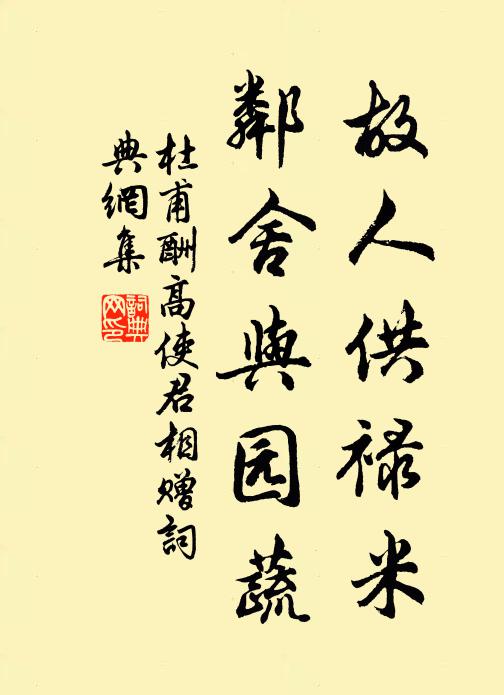 故人供禄米
鄰舍與园蔬
杜甫酬高使君相贈詞
典網集
詞典
网印